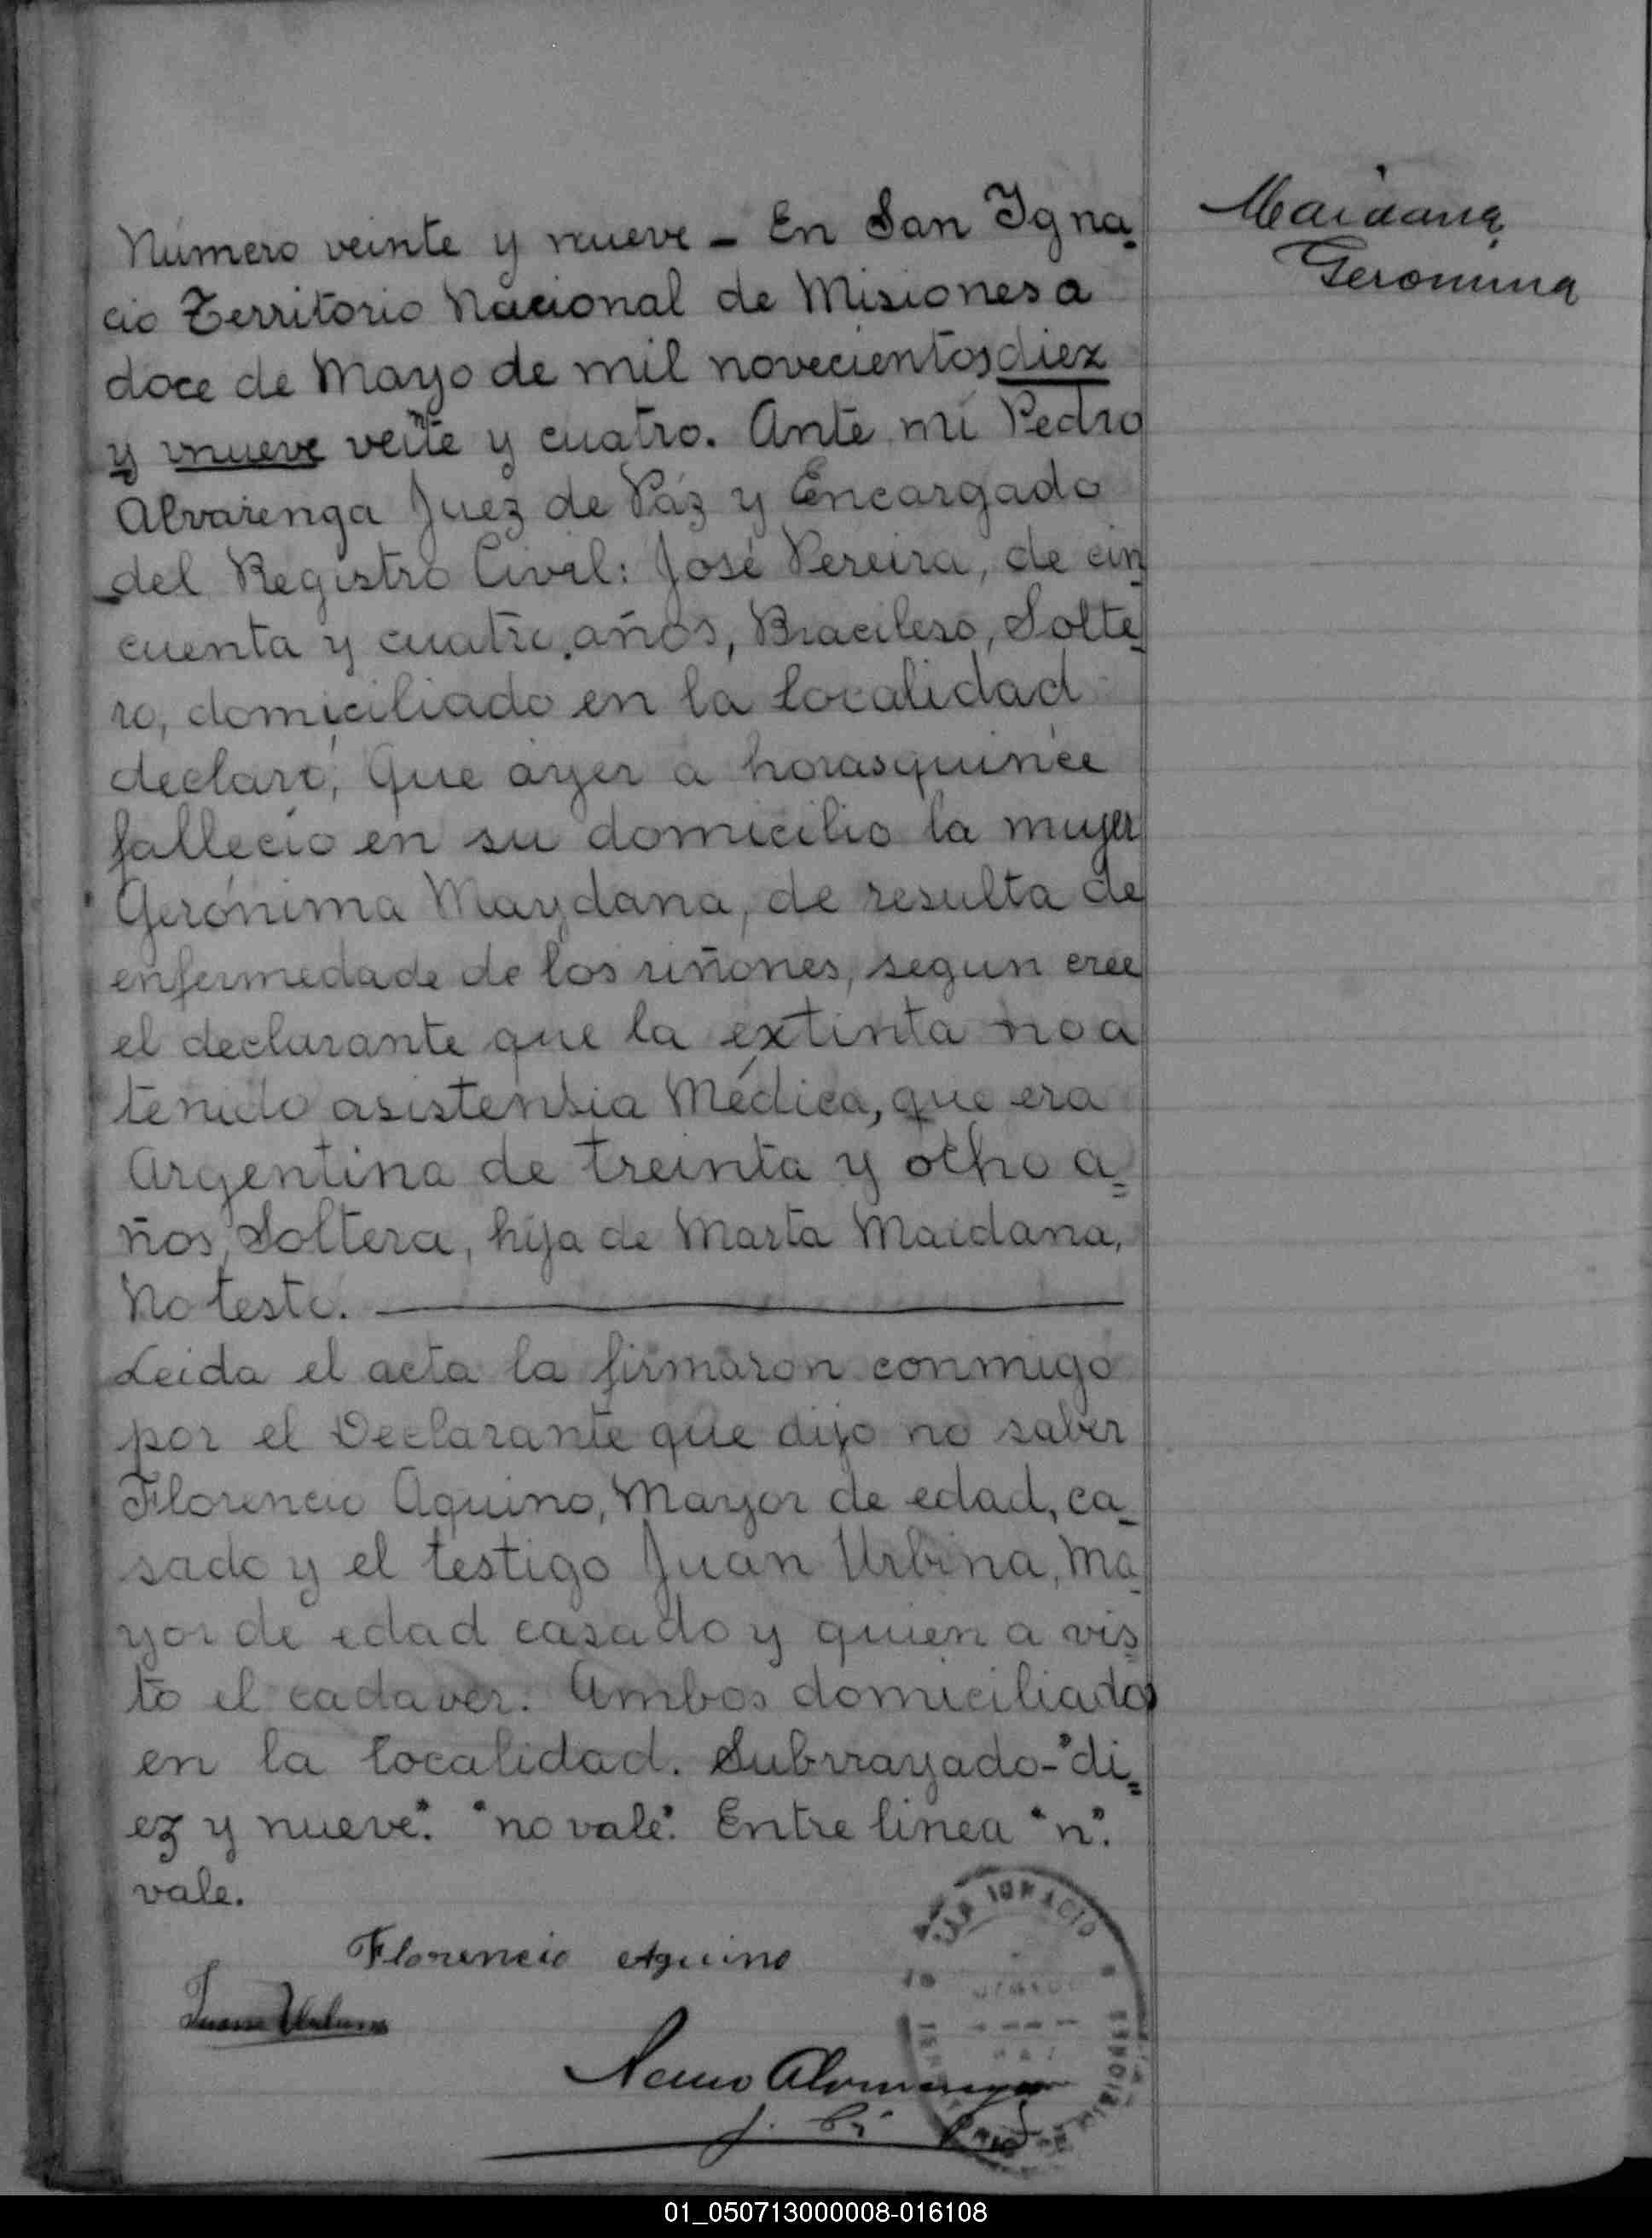 Maidana
Geronima
Número veinte y nueve - En San Igna-
cio Territorio Nacional de Misiones a
doce de Mayo de mil novecientos diez
y nueve veinte y cuatro. Ante mi Pedro
Alvarenga Juez de Páz y Encargado
del Registro Civil: José Pereira, de cin
cuenta y cuatro años, Bracilero, Solte-
ro, domiciliado en la localidad
declaró; Que ayer a horas quince
fallecio en su domicilio la mujer
Gerónima Maydana, de resulta de
enfermedade de los riñones, segun cree
el declarante que la extinta no a
tenido asistensia Médica, que era
Argentina de treinta y ocho a=
ños, Soltera, hija de Marta Maidana,
No testó.
Leida el acta la firmaron conmigo
por el Declarante que dijo no saber
Florencio Aquino, Mayor de edad, ca-
sado y el testigo Juan Urbina, Ma-
yor de edad casado y quien a vis
to el cadaver. Ambos domiciliados
en la localidad. Subrrayado-"di=
ez y nueve". "no vale". Entre linea "n".
vale.
Florencio Aquino
Juan Urbina
Alvarenga
SAN IGNACIO
MISIONES
01_050713000008-016108